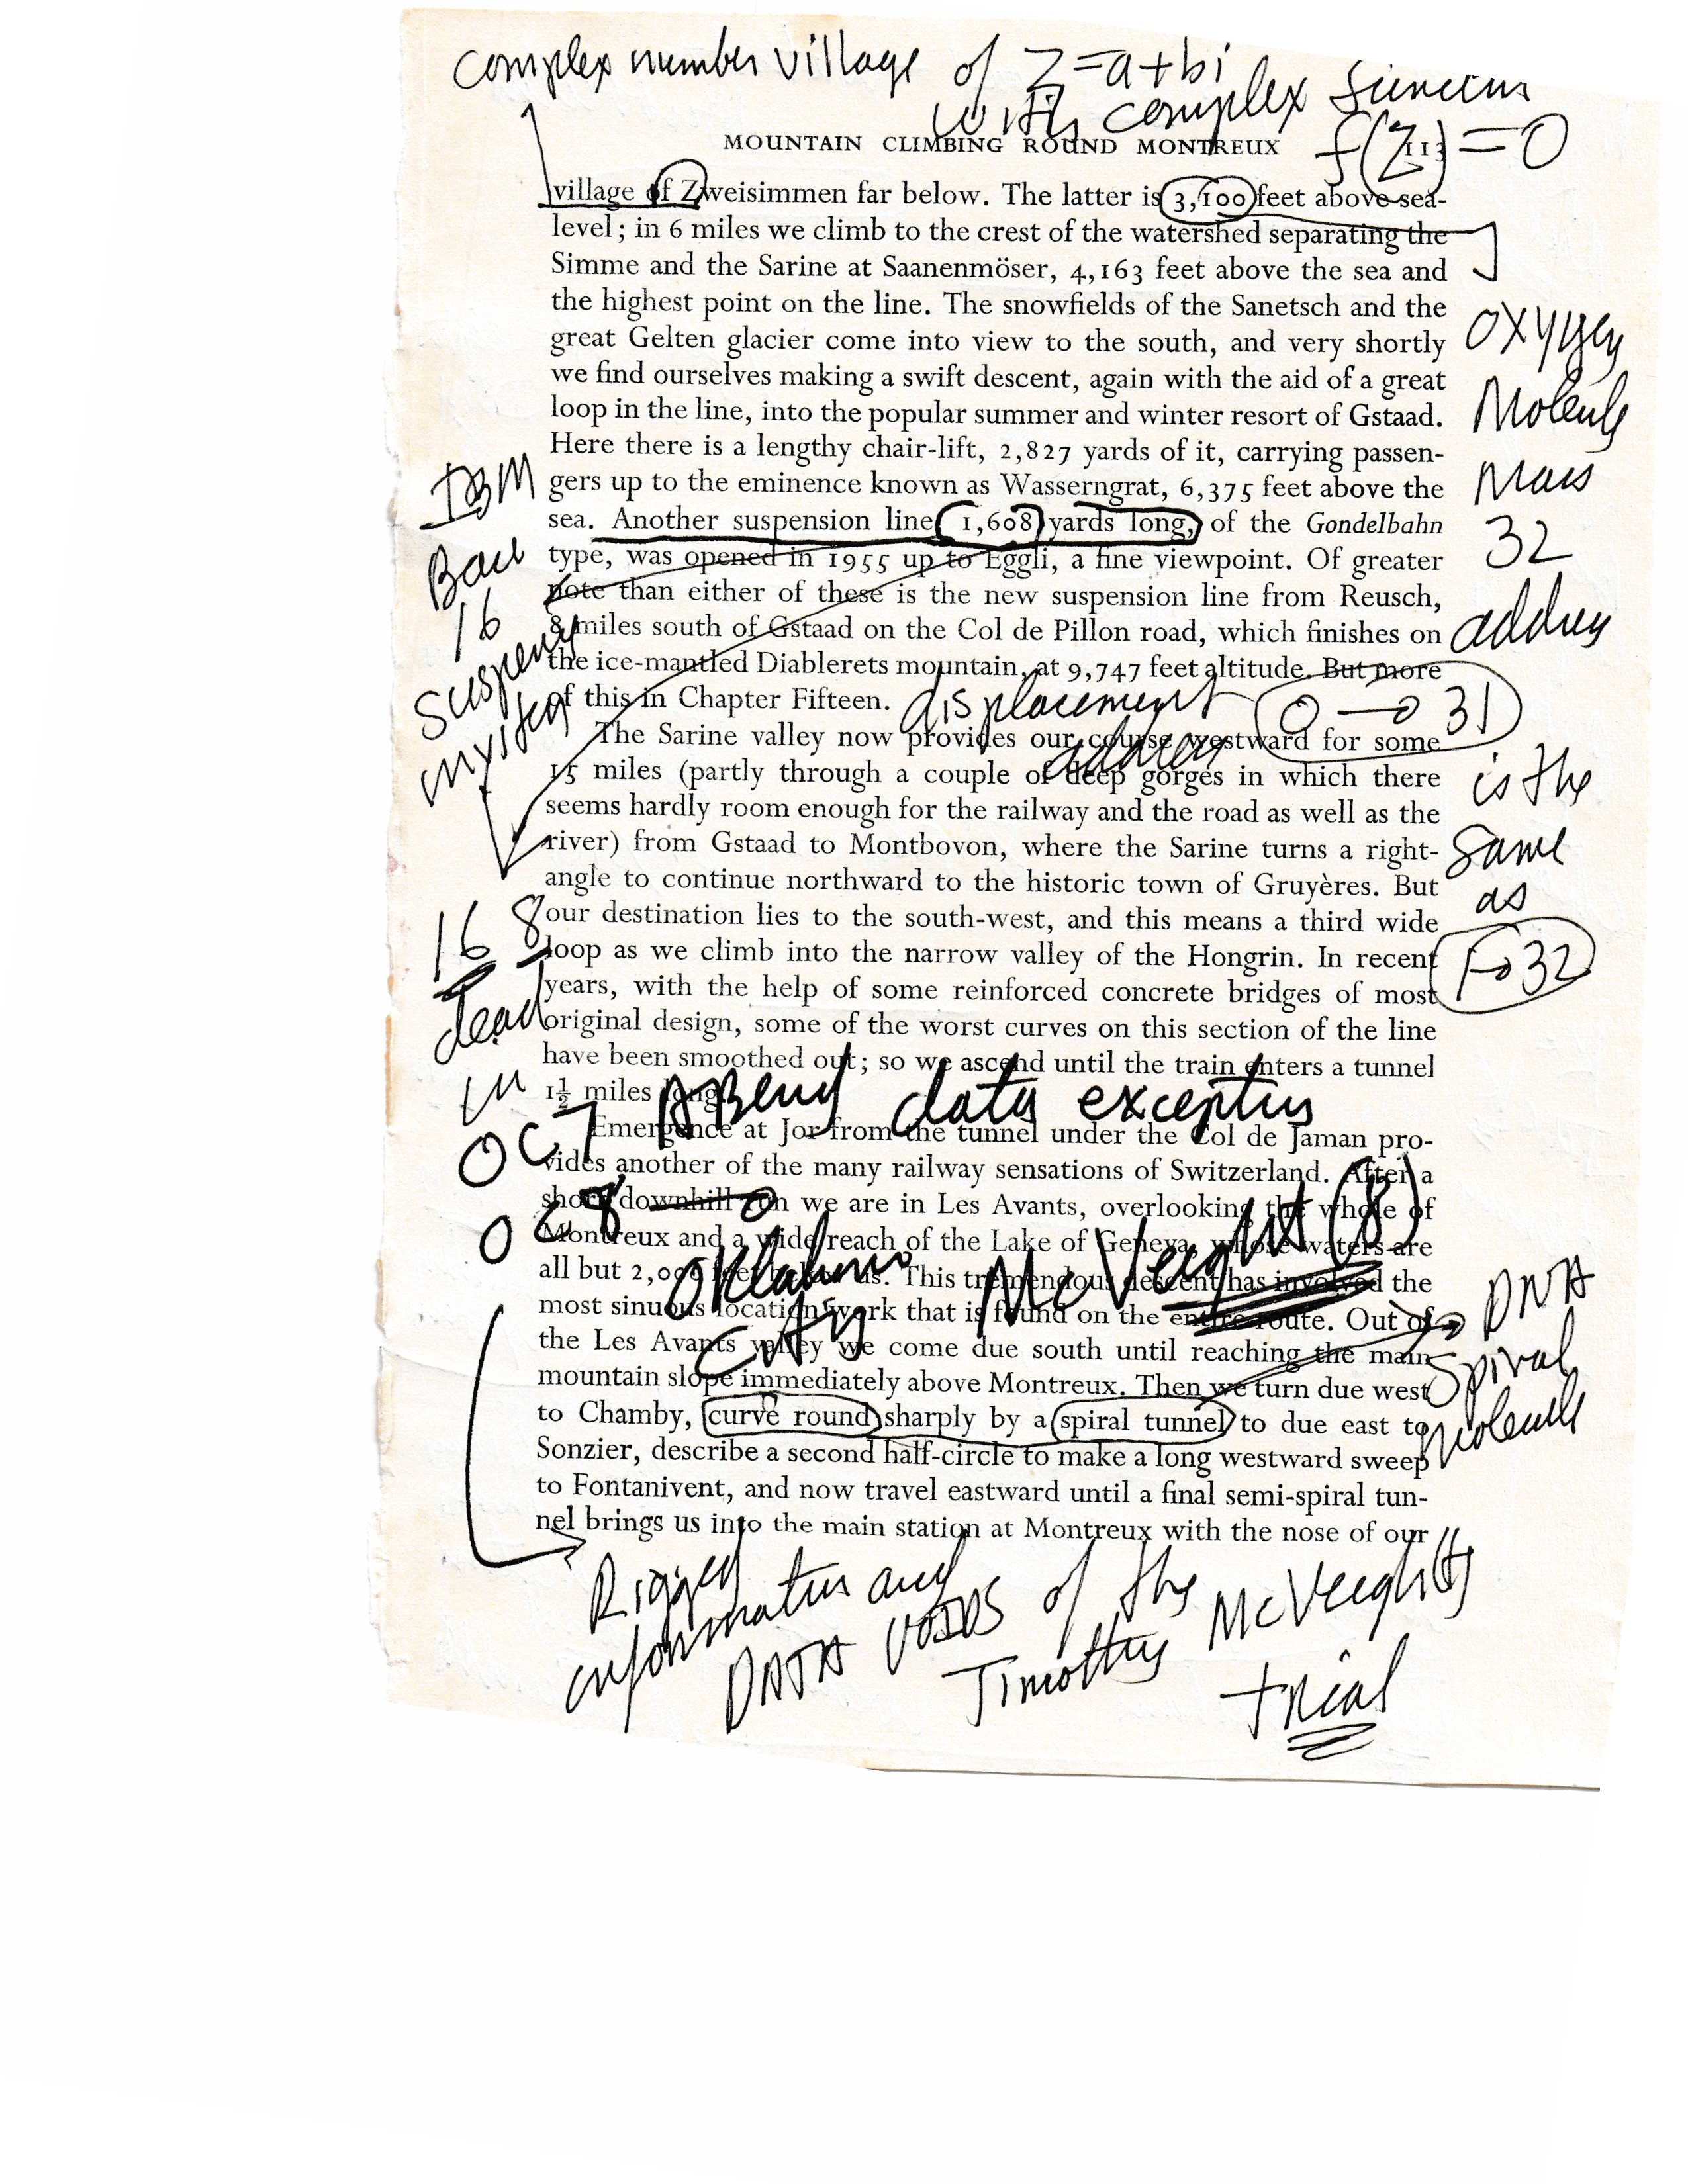 complex number village of Z=a+bi
with complex
f(Z)=0
MOUNTAIN CLIMBING ROUND MONTREUX 113
village of Zweisimmen far below. The latter is 3,100 feet above sea-
level; in 6 miles we climb to the crest of the watershed separating the
Simme and the Sarine at Saanenmöser, 4,163 feet above the sea and
the highest point on the line. The snowfields of the Sanetsch and the
great Gelten glacier come into view to the south, and very shortly
we find ourselves making a swift descent, again with the aid of a great
loop in the line, into the popular summer and winter resort of Gstaad.
Here there is a lengthy chair-lift, 2,827 yards of it, carrying passen-
gers up to the eminence known as Wasserngrat, 6,375 feet above the
sea. Another suspension line 1,608 yards long, of the Gondelbahn
type, was opened in 1955 up to Eggli, a fine viewpoint. Of greater
note than either of these is the new suspension line from Reusch,
8 miles south of Gstaad on the Col de Pillon road, which finishes on
the ice-mantled Diablerets mountain, at 9,747 feet altitude. But more
of this in Chapter Fifteen.
The Sarine valley now provides our course westward for some
15 miles (partly through a couple of deep gorges in which there
seems hardly room enough for the railway and the road as well as the
river) from Gstaad to Montbovon, where the Sarine turns a right-
angle to continue northward to the historic town of Gruyères. But
our destination lies to the south-west, and this means a third wide
loop as we climb into the narrow valley of the Hongrin. In recent
years, with the help of some reinforced concrete bridges of most
original design, some of the worst curves on this section of the line
have been smoothed out; so we ascend until the train enters a tunnel
1½ miles long.
Emergence at Jor from the tunnel under the Col de Jaman pro-
vides another of the many railway sensations of Switzerland. After a
short downhill run we are in Les Avants, overlooking the whole of
Montreux and a wide reach of the Lake of Geneva, whose waters are
all but 2,000 feet below us. This tremendous descent has involved the
most sinuous location work that is found on the entire route. Out of
the Les Avants valley we come due south until reaching the main
mountain slope immediately above Montreux. Then we turn due west
to Chamby, curve round sharply by a spiral tunnel to due east to
Sonzier, describe a second half-circle to make a long westward sweep
to Fontanivent, and now travel eastward until a final semi-spiral tun-
nel brings us into the main station at Montreux with the nose of our
oxygen
Molecule
Mass
32
address
displacement
address
0→31
is the
same
as
1→32
IBM
Base
16
16 8
dead
in
OC7 ABend data exception
OC8→
Oklahoma
City
McVeight(8)
DNA
Spiral
molecule
Rigged
information and
DATA VOIDS of the
Timothy McVeigh(t)
trial